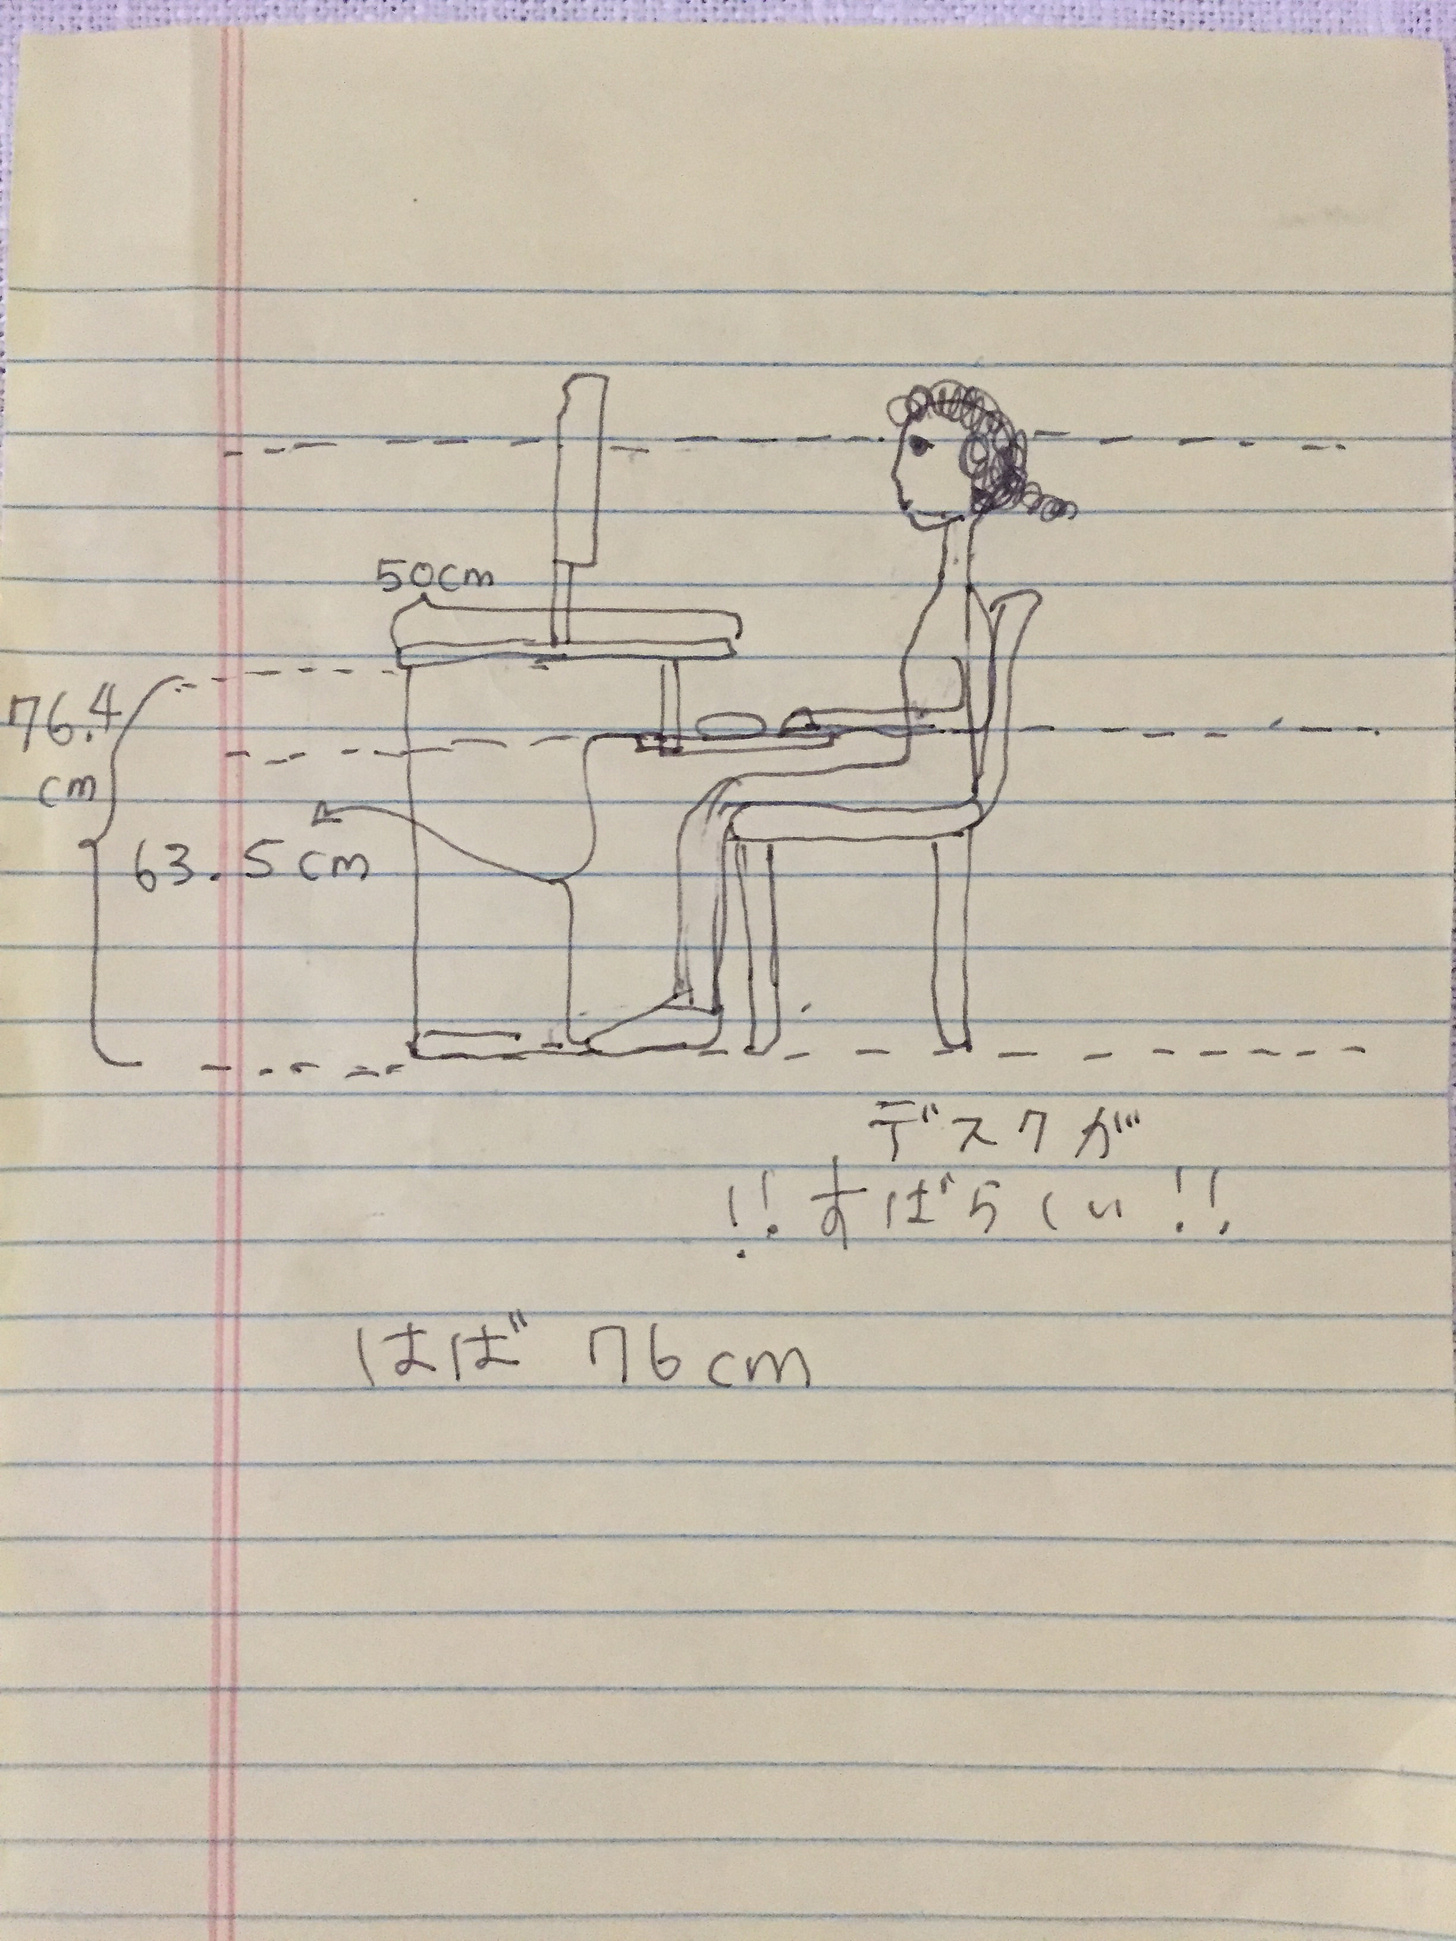 50cm
76.4
cm
63.5cm
デスクが
!!すばらしい!!
はば 76cm